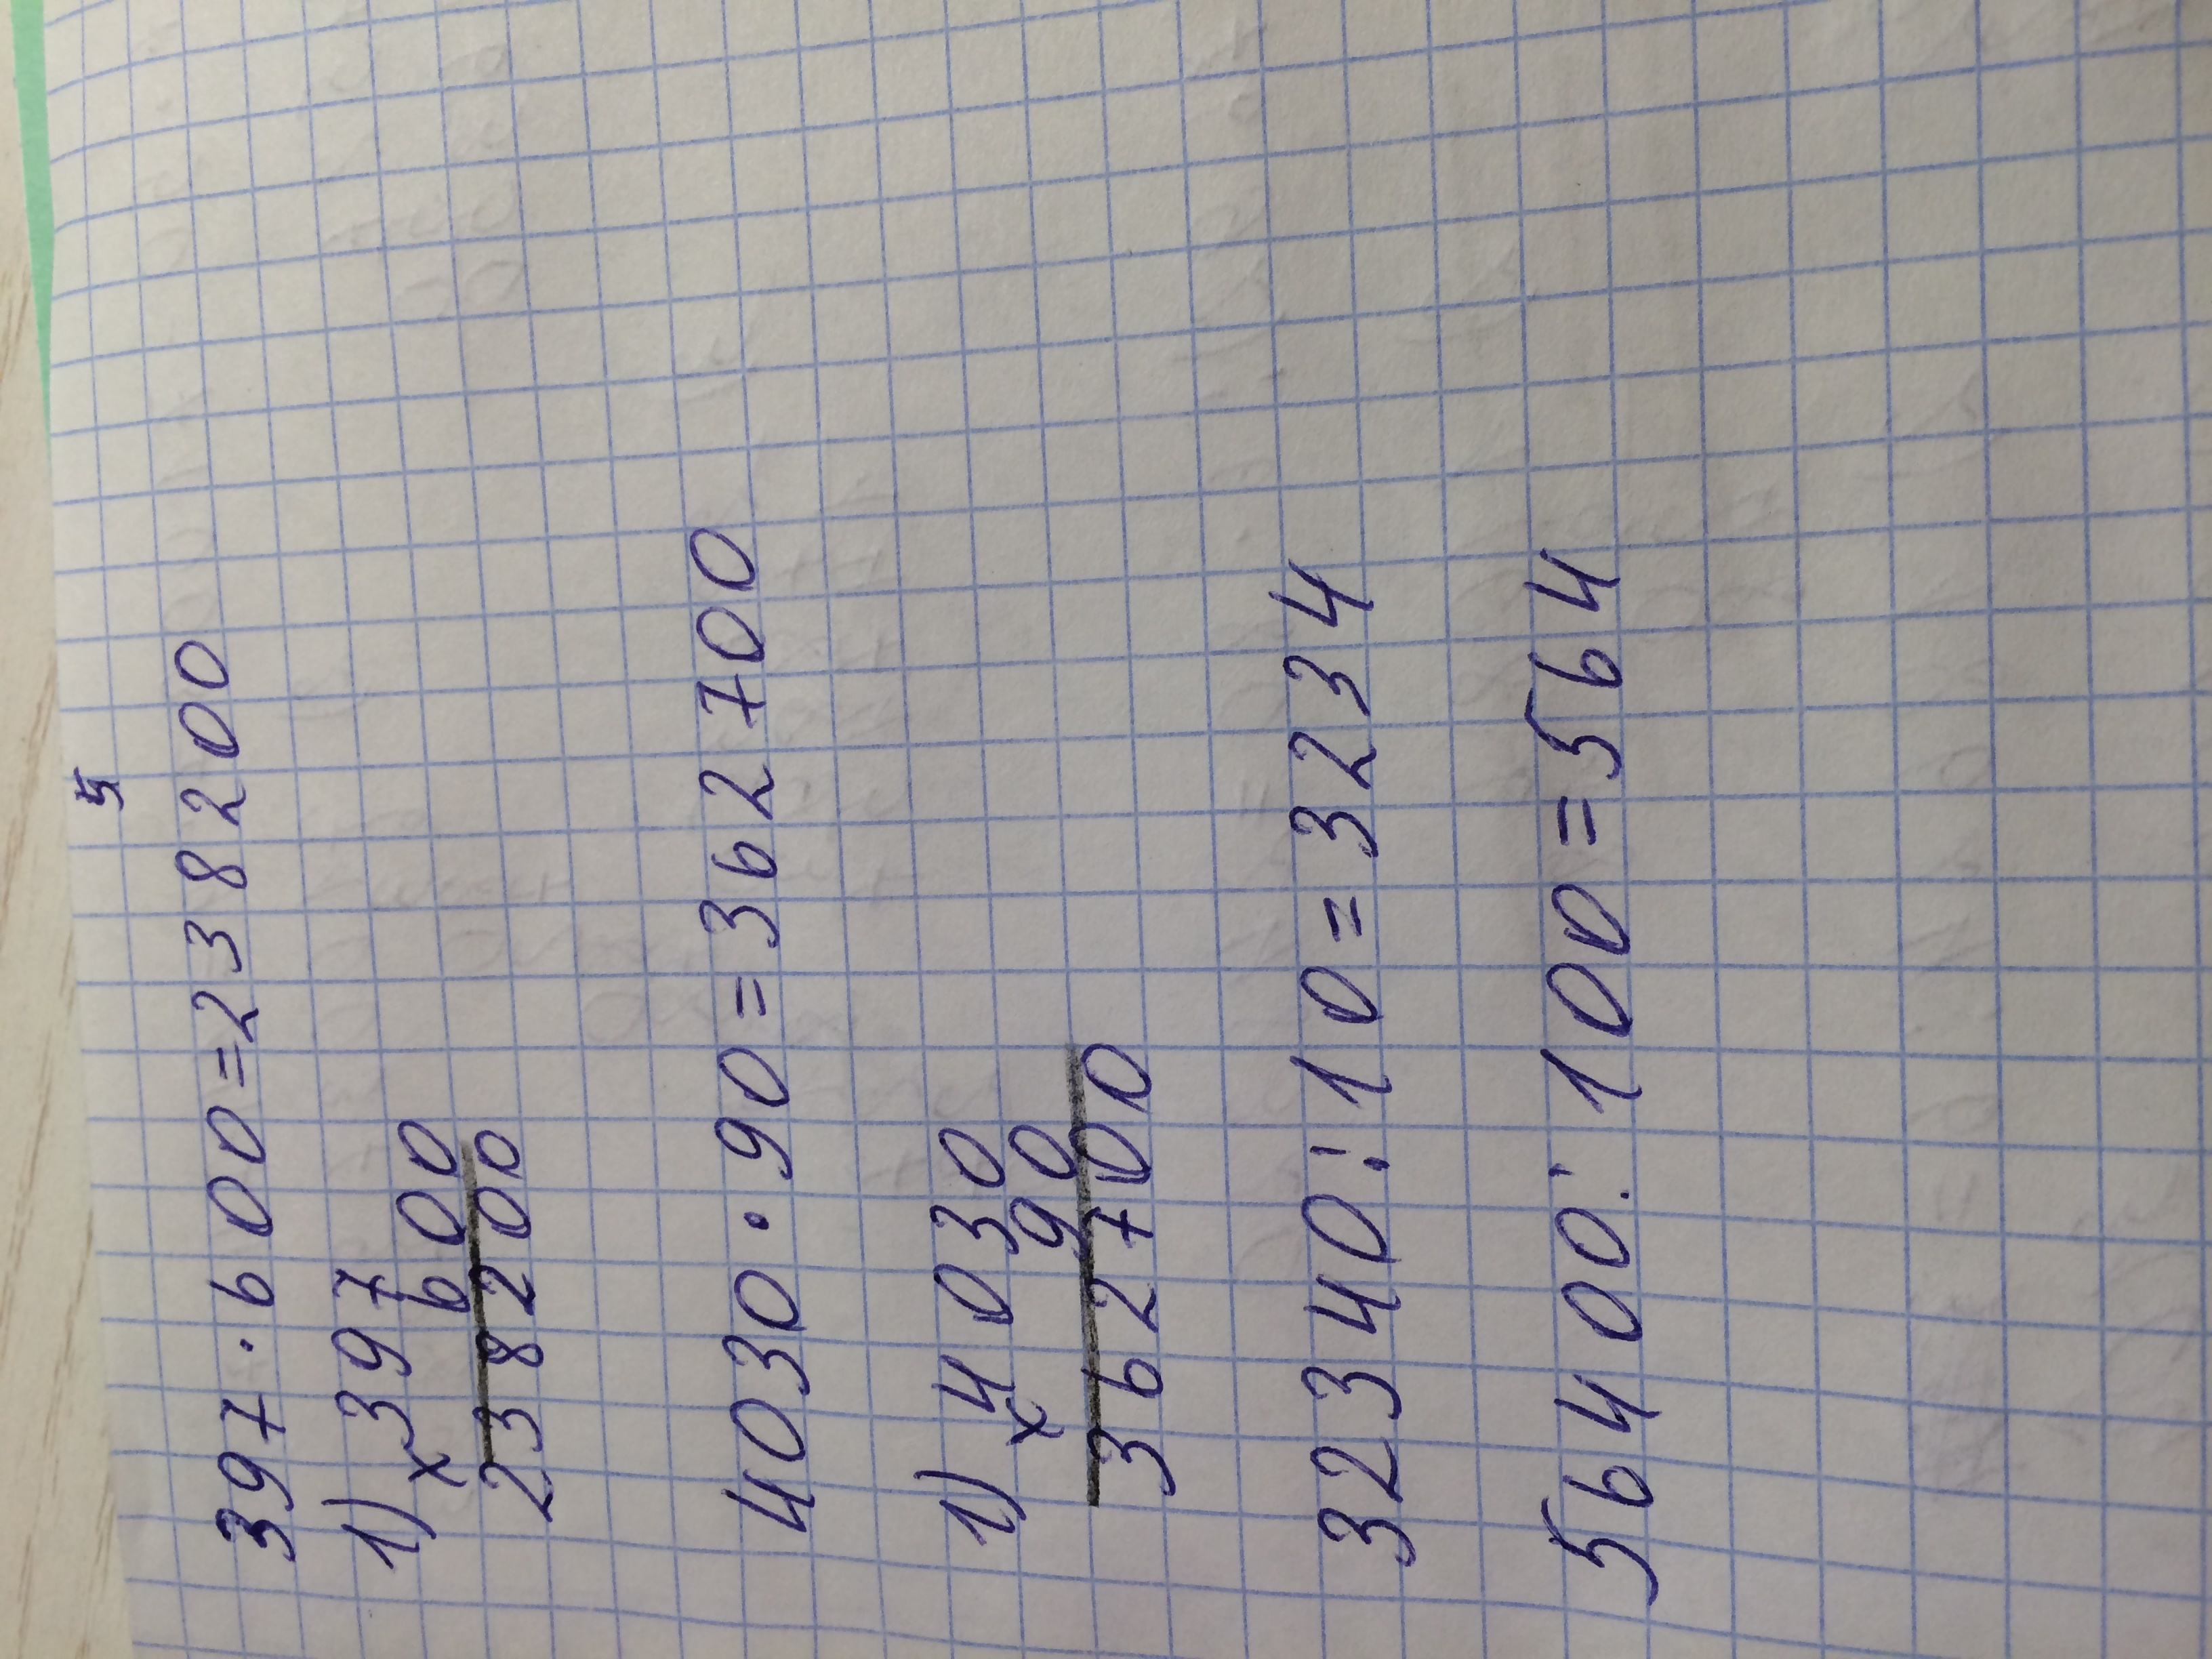 5
397·600=238200
1) ×397
600
238200
4030·90=362700
1) ×4030
90
362700
32340:10=3234
56400:100=564